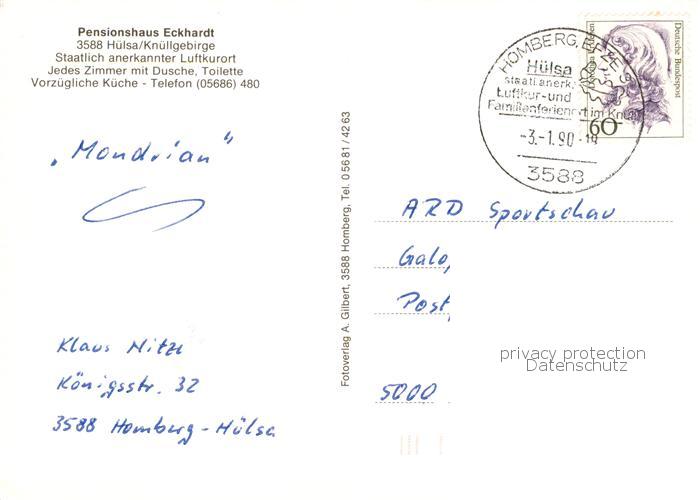 Pensionshaus Eckhardt
3588 Hülsa/Knüllgebirge
Staatlich anerkannter Luftkurort
Jedes Zimmer mit Dusche, Toilette
Vorzügliche Küche - Telefon (05686) 480
„Mondrian“
Klaus Hitzl
Königsstr. 32
3588 Homberg-Hülsa
Fotoverlag A. Gilbert, 3588 Homberg, Tel. 05681/4263
HOMBERG, EFZE
Hülsa
staatl. anerk.
Luftkur- und
Familienferienort im Knüll
-3.-1.90-18
3588
60
Deutsche Bundespost
ARD Sportschau
Galo,
Post,
5000
privacy protection
Datenschutz